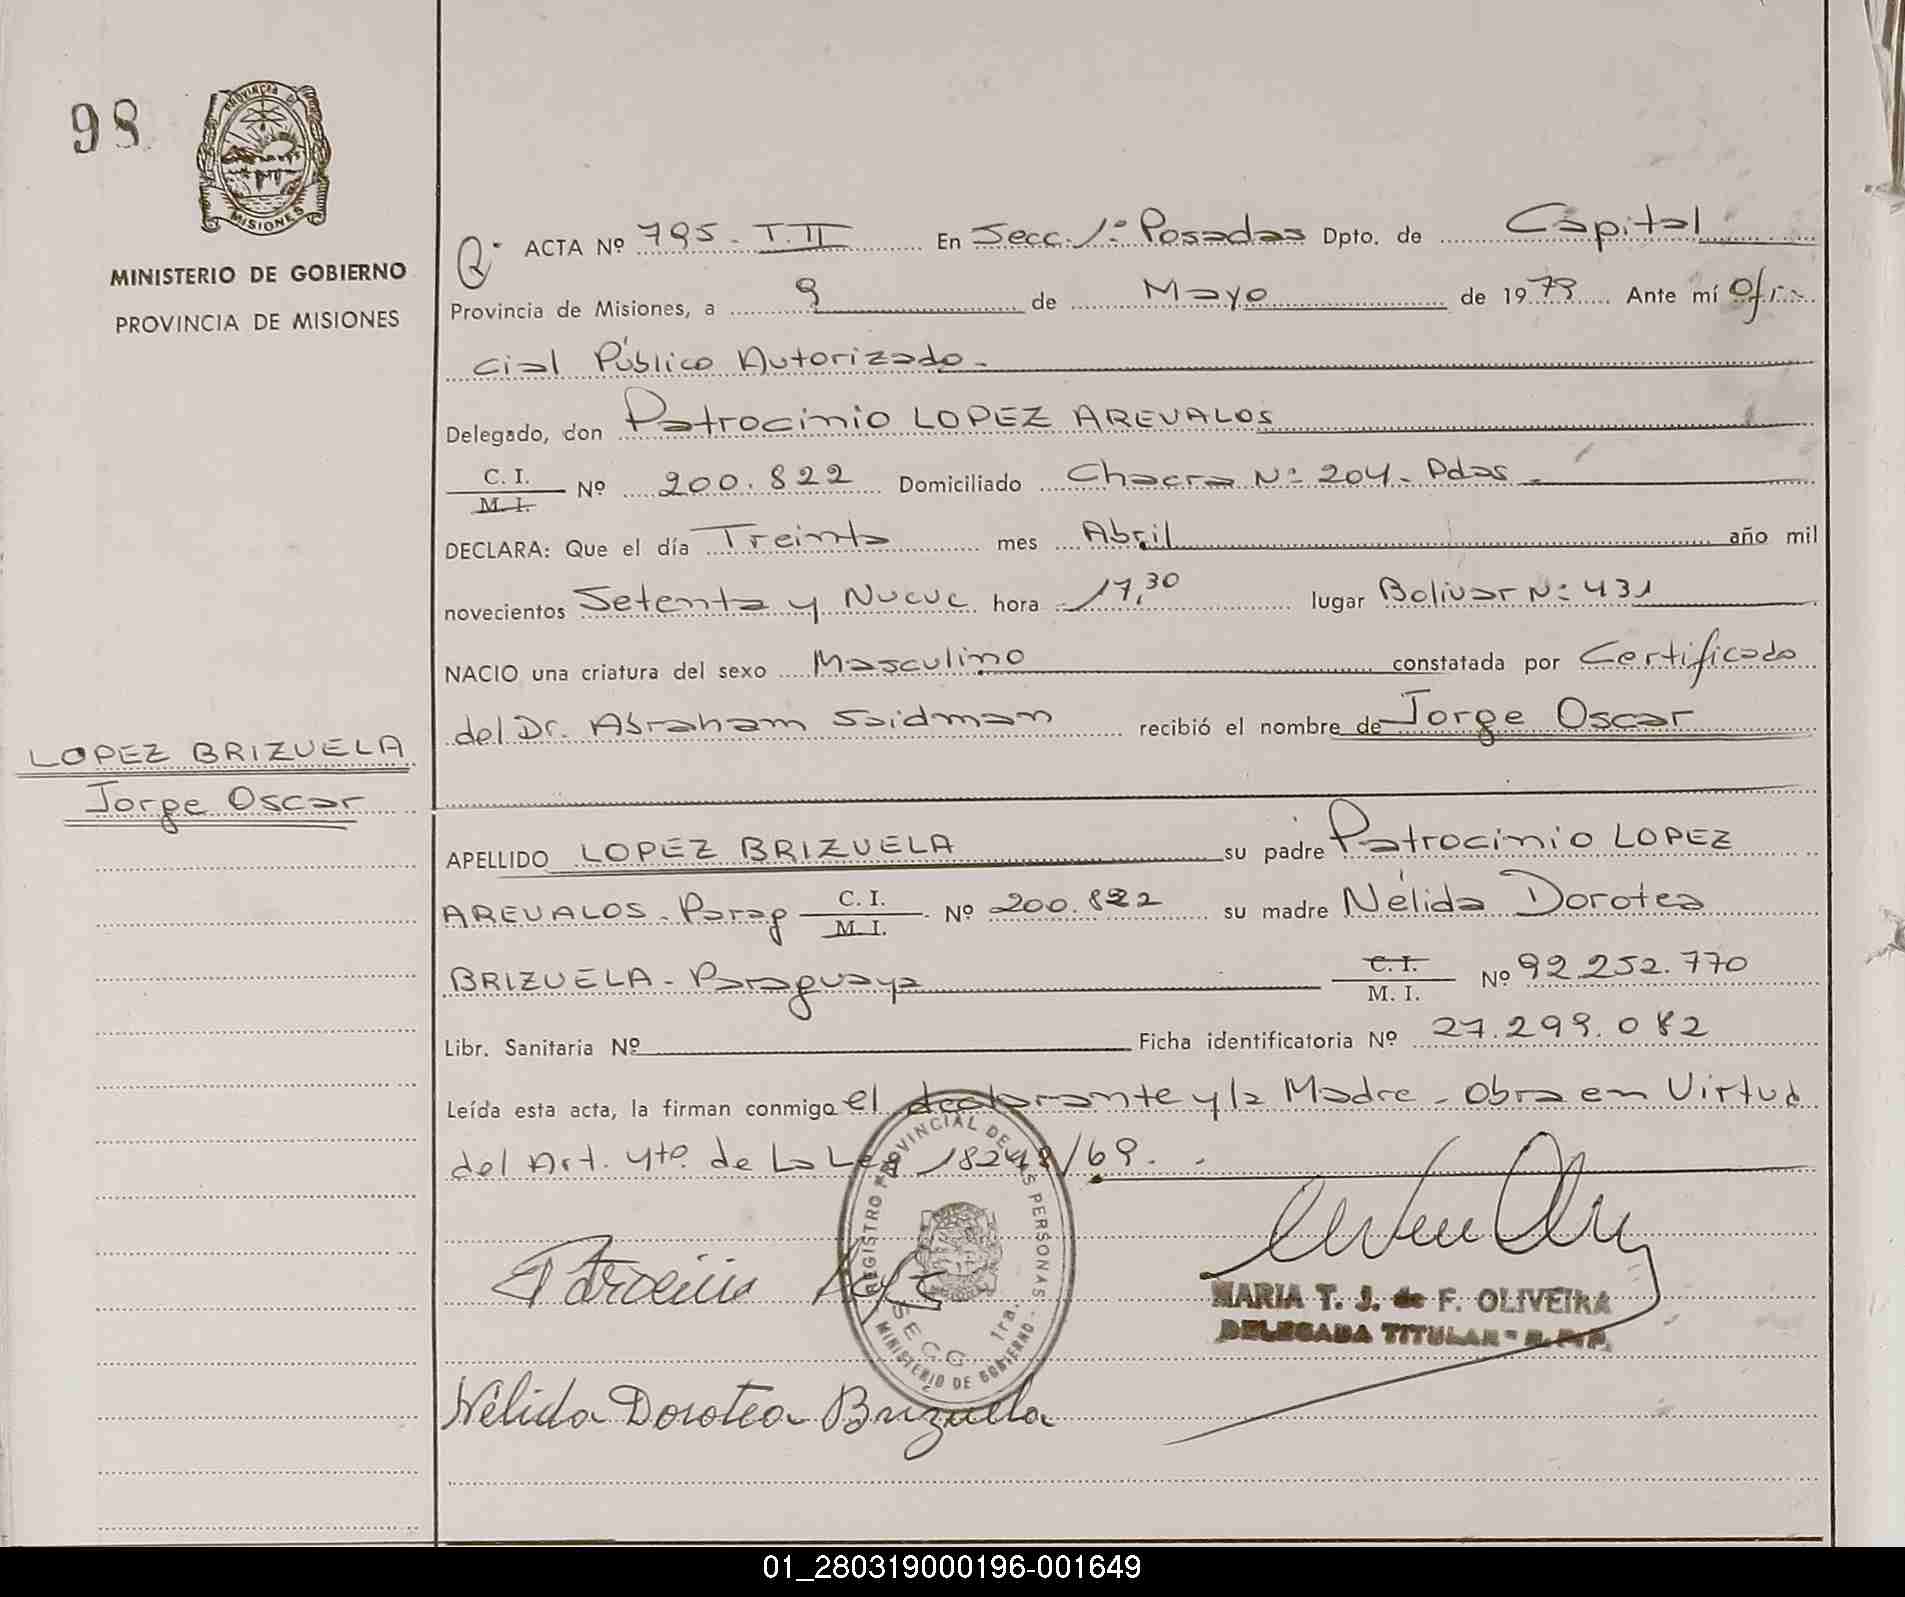 98
PROVINCIA DE
MISIONES
MINISTERIO DE GOBIERNO
PROVINCIA DE MISIONES
ACTA Nº 795 - T. II En Secc. 1ª Posadas Dpto. de Capital
Provincia de Misiones, a 9 de Mayo de 1979 Ante mí Ofi
cial Público Autorizado -
Delegado, don Patrocinio LOPEZ AREVALOS
C. I.
M. I.
Nº 200.822 Domiciliado Chacra Nº 204 - Pdas -
DECLARA: Que el día Treinta mes Abril año mil
novecientos Setenta y Nueve hora 17,30 lugar Bolivar Nº 431
NACIO una criatura del sexo Masculino constatada por Certificado
del Dr. Abraham Saidman recibió el nombre de Jorge Oscar
LOPEZ BRIZUELA
Jorge Oscar
APELLIDO LOPEZ BRIZUELA su padre Patrocinio LOPEZ
AREVALOS - Parag C. I.
M. I.
Nº 200.822 su madre Nélida Dorotea
BRIZUELA - Paraguaya C. I.
M. I.
Nº 92.252.770
Libr. Sanitaria Nº Ficha identificatoria Nº 27.299.082
Leída esta acta, la firman conmigo el declarante y la Madre - Obra en Virtud
del Art. 4to. de La Ley 18248/69.
REGISTRO PROVINCIAL DE LAS PERSONAS
SECC. 1ra.
MINISTERIO DE GOBIERNO
MARIA T. J. de F. OLIVEIRA
DELEGADA TITULAR - R. P. P.
Nélida Dorotea Brizuela
01_280319000196-001649